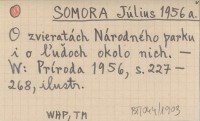 SOMORA Július 1956 a.
O zvieratách Národného parku
i o ľuďoch okolo nich. —
W: Príroda 1956, s. 227—
268, ilustr.
WHP, TM